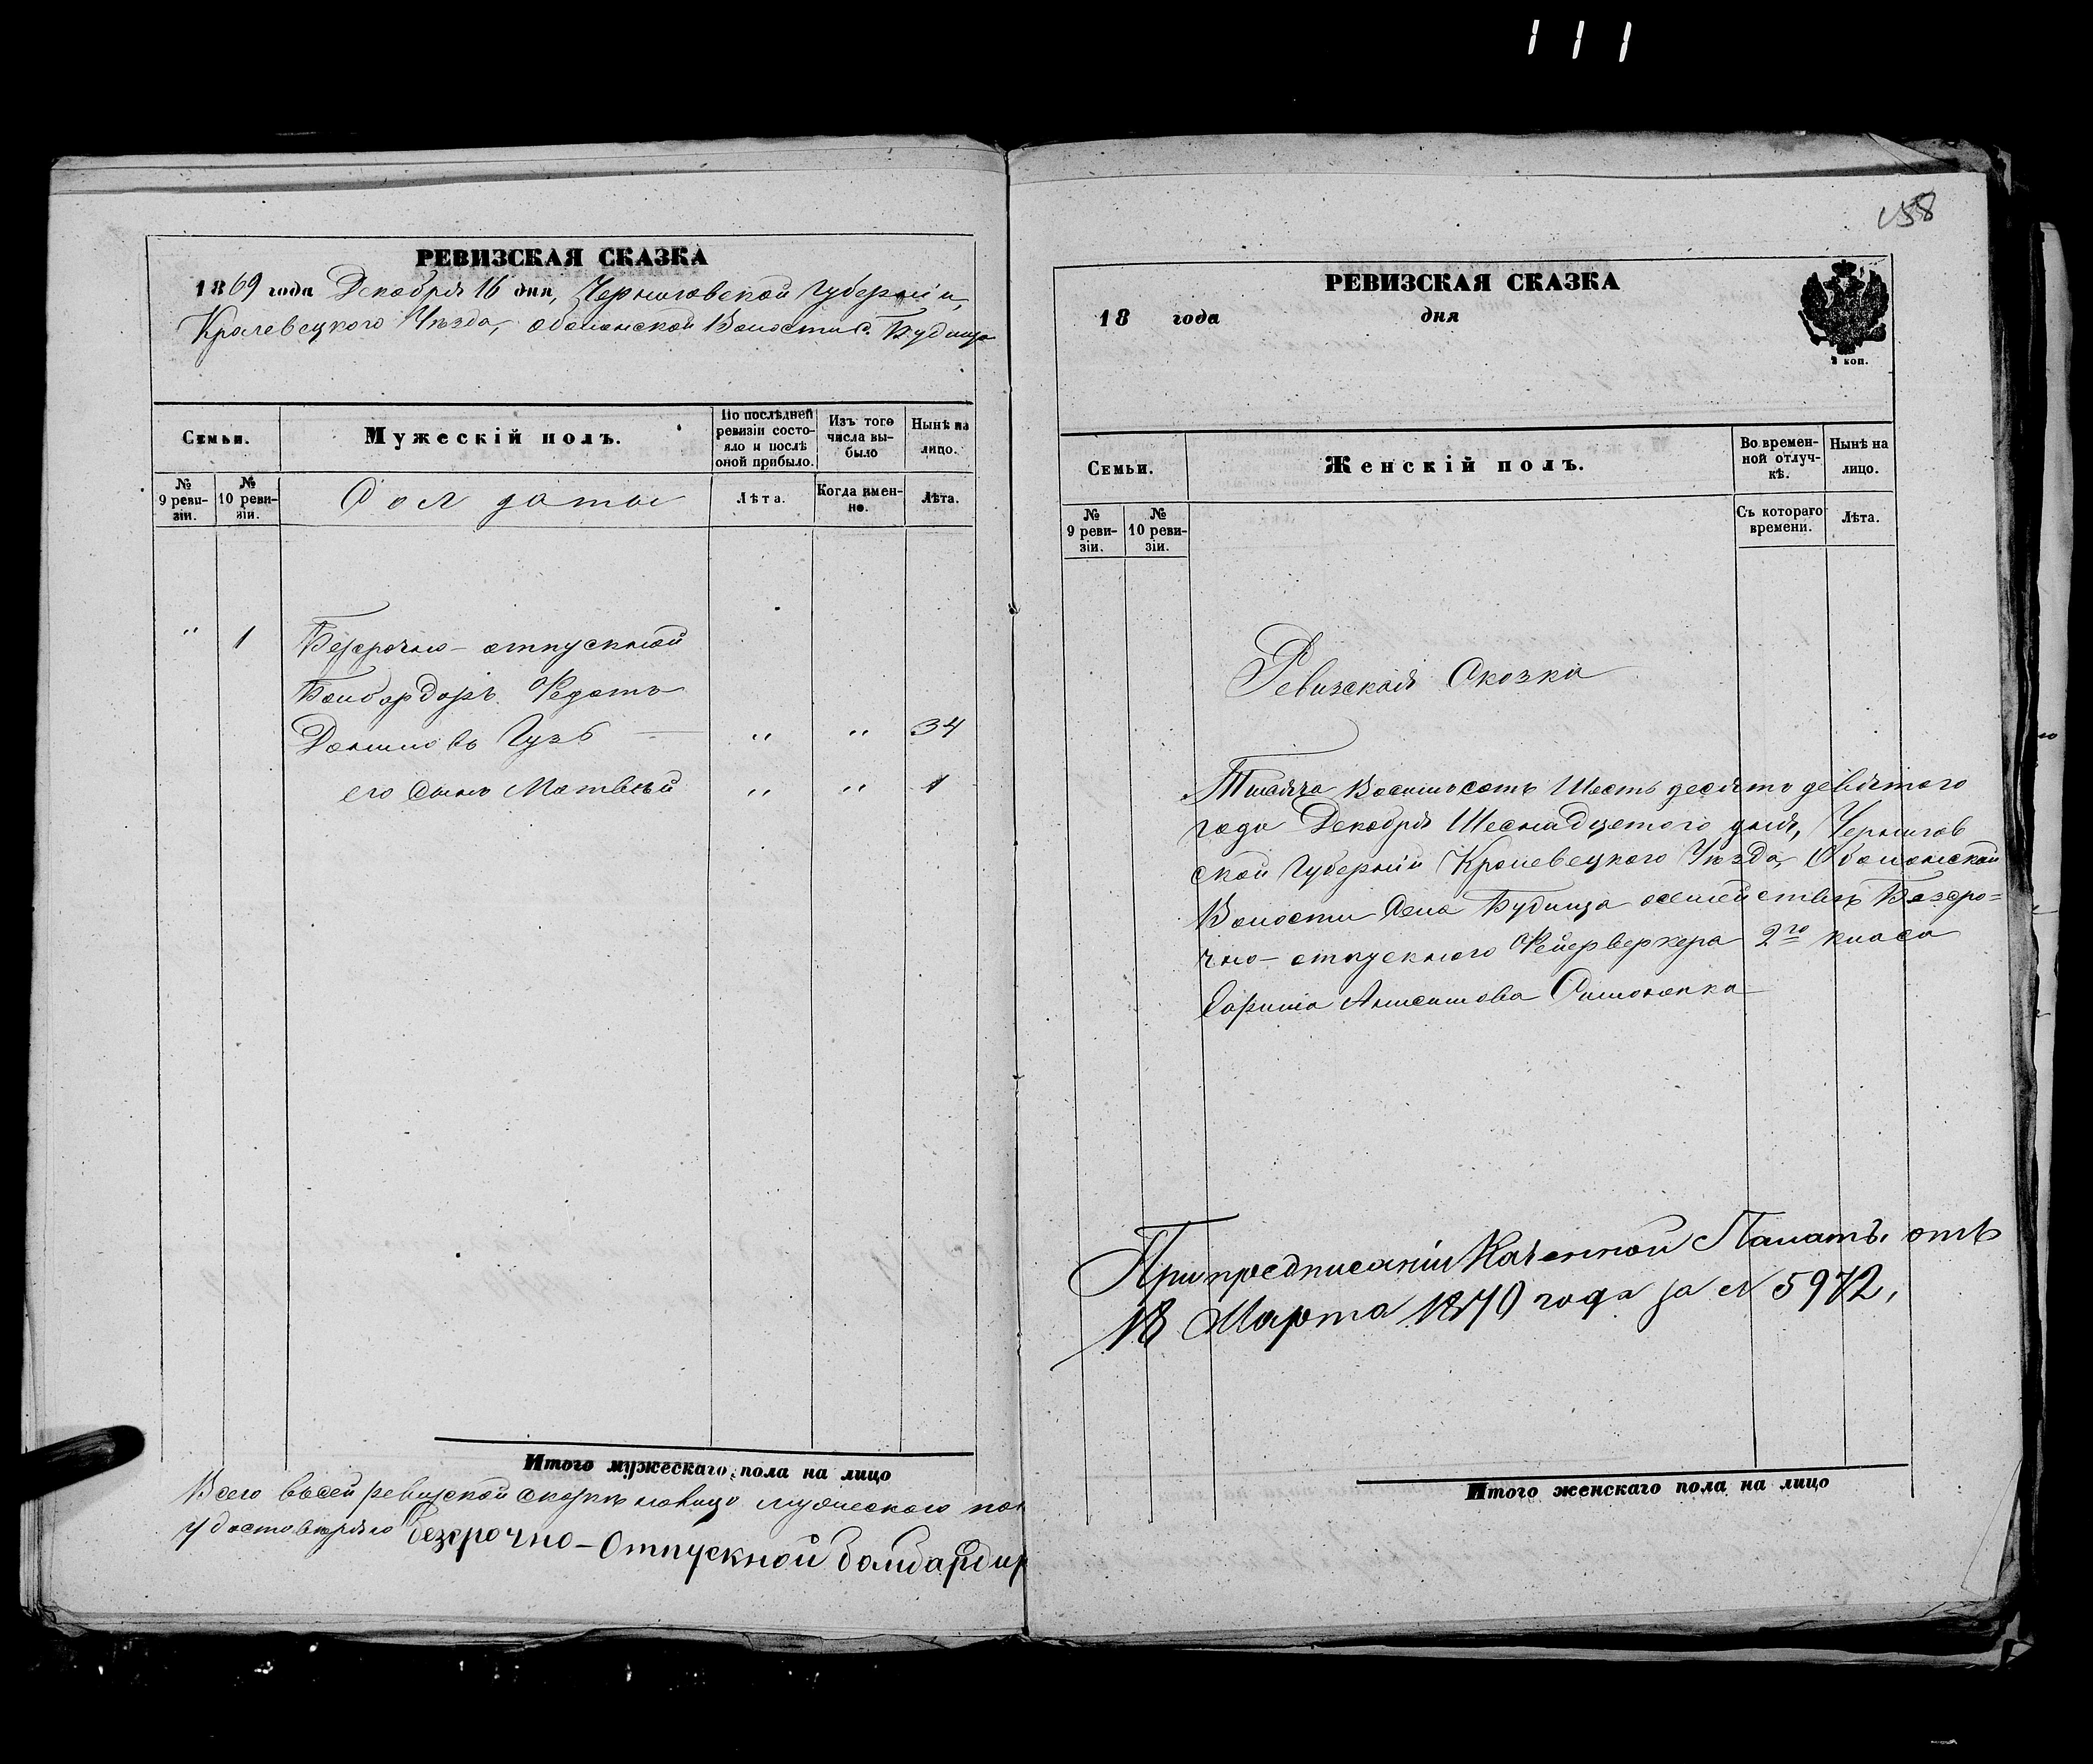 111
РЕВИЗСКАЯ СКАЗКА
1869 года Декабря 16 дня, Черниговской Губерніи,
Кролевецкого Уѣзда, Оболонской Волости с. Будища
Семьи.
Мужескій полъ.
По послѣдней ревизіи состояло и послѣ оной прибыло.
Изъ того числа выбыло
Нынѣ на лицо.
№ 9 ревизіи.
№ 10 ревизіи.
Солдаты
Лѣта.
Когда именно.
Лѣта.
" 1 Безсрочно-отпускной
Бомбардиръ Федотъ
Гузъ " " 34
его Сынъ Матвѣй " " 1
Итого мужескаго пола на лицо
Всего въ сей ревизской сказкѣ на лицо мужеского пол
Удостовѣряю безсрочно-Отпускной бомбардир
158
РЕВИЗСКАЯ СКАЗКА
18 года дня
2 коп.
Семьи.
Женскій полъ.
Во временной отлучкѣ.
Нынѣ на лицо.
№ 9 ревизіи.
№ 10 ревизіи.
Съ котораго времени.
Лѣта.
Ревизская Сказка
Тысяча Восемьсотъ Шестьдесятъ девятого
года Декабря Шеснадцетого дня, Чернигов
ской Губерніи Кролевецкого Уѣзда, Оболонской
Волости Села Будища о семействѣ Безсро=
чно-отпускного Фейерверкера 2го класа
Анисимова Симоненка
При предписаніи Казенной Палаты отъ
18 Марта 1870 года за № 5972,
Итого женскаго пола на лицо